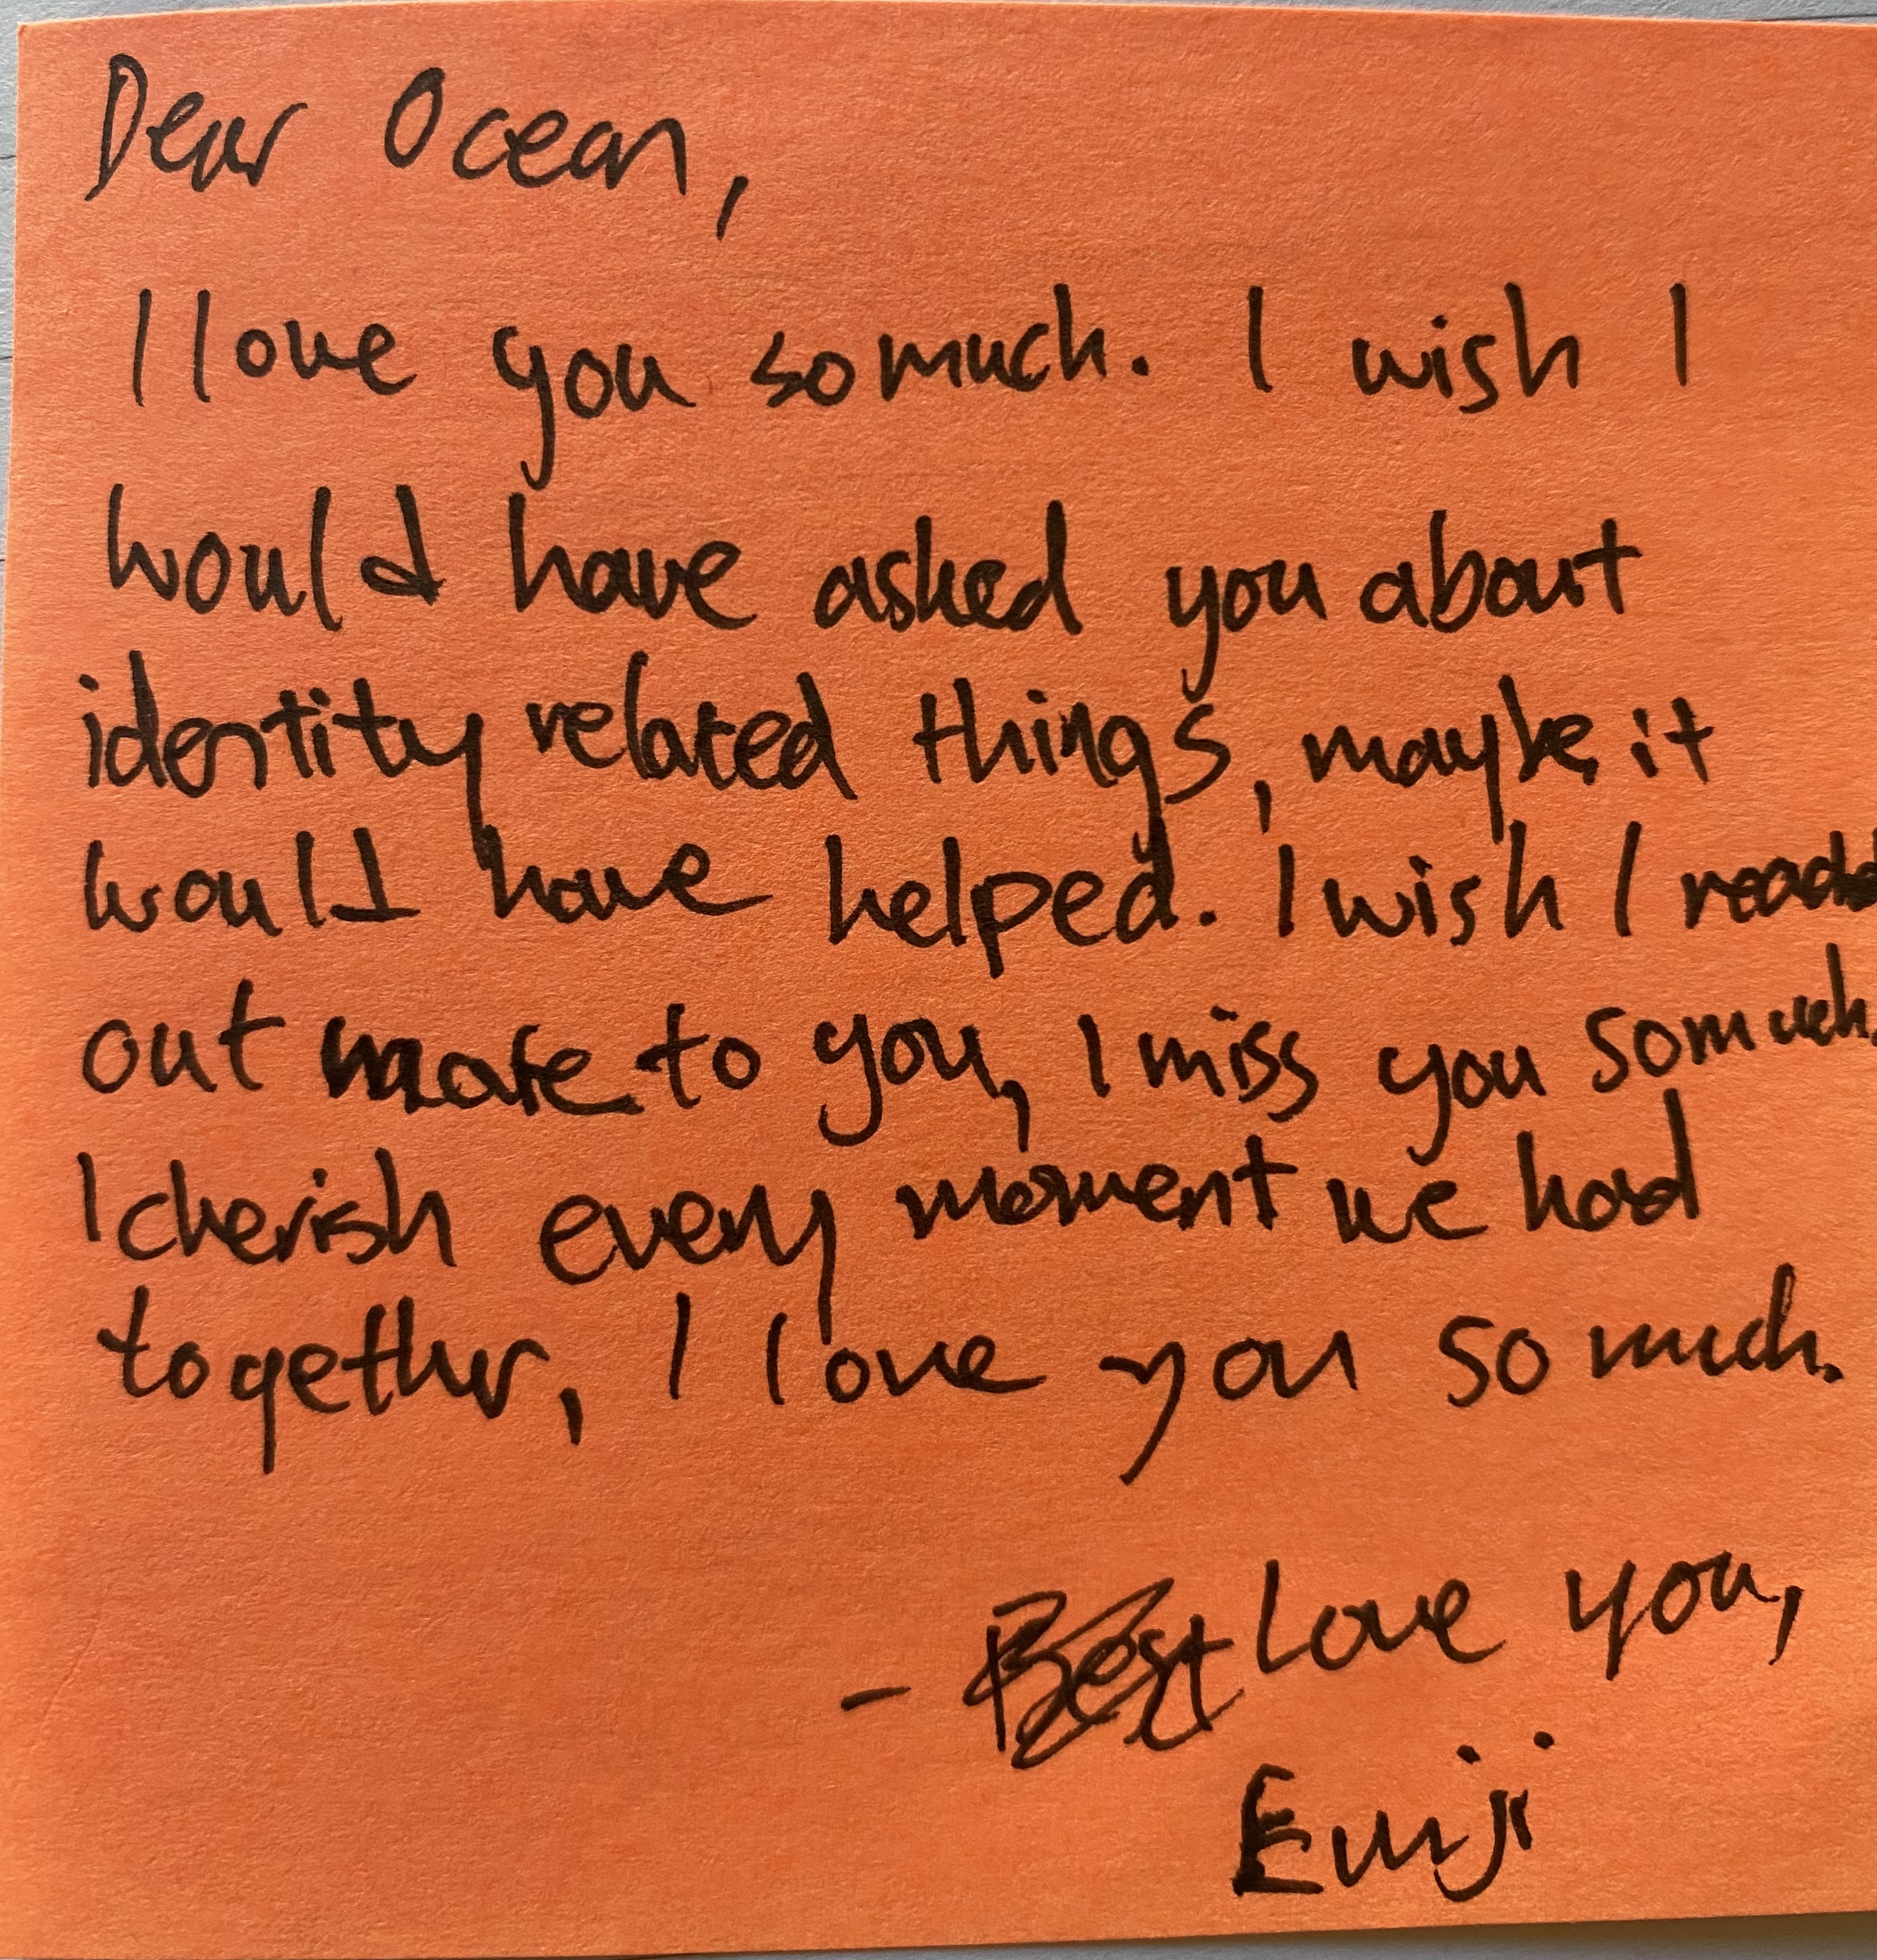 Dear Ocean,
I love you so much. I wish I
would have asked you about
identity related things, maybe it
would have helped. I wish I
out more to you, I miss you so much.
I cherish every moment we had
together, I love you so much.
- Best love you,